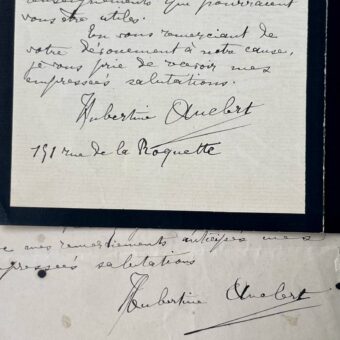 renseignements qui pourraient
vous être utiles.
En vous remerciant de
votre dévouement à notre cause,
je vous prie de recevoir mes
empressées salutations.
Hubertine Auclert
151 rue de la Roquette
mes remerciements anticipés mes
empressées salutations
Hubertine Auclert